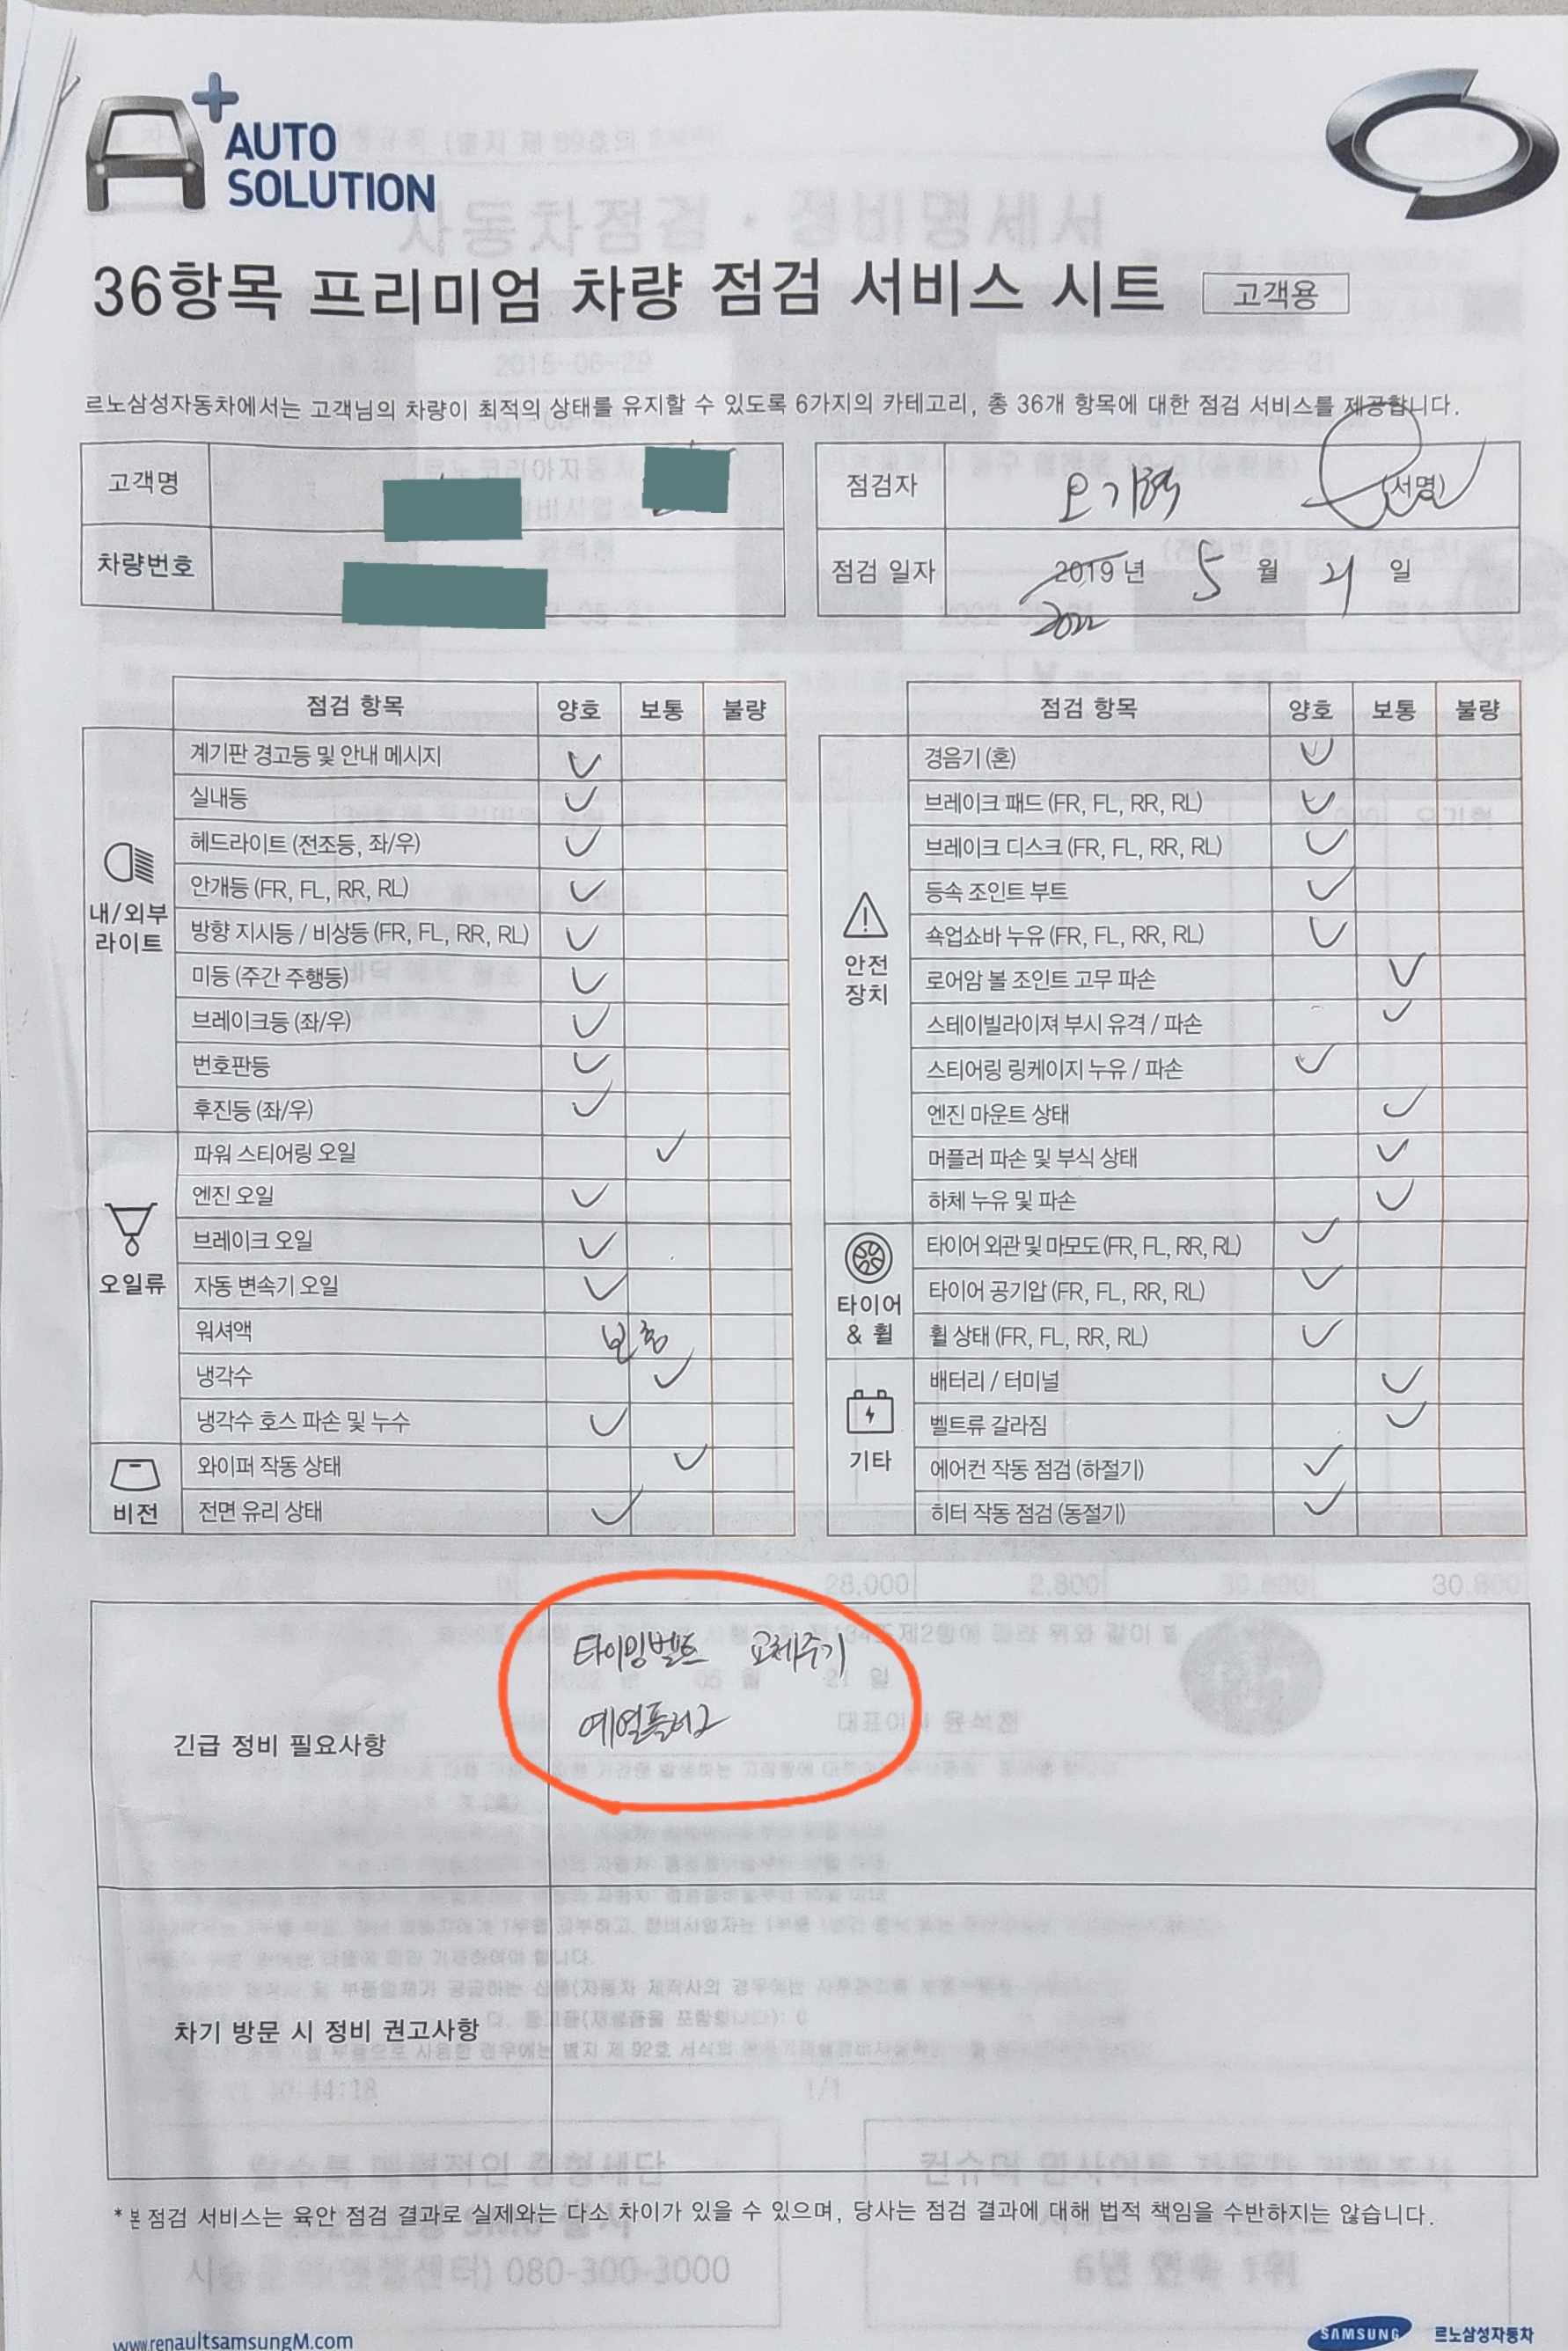 AUTO
SOLUTION
36항목 프리미엄 차량 점검 서비스 시트 고객용
르노삼성자동차에서는 고객님의 차량이 최적의 상태를 유지할 수 있도록 6가지의 카테고리, 총 36개 항목에 대한 점검 서비스를 제공합니다.
고객명
차량번호
점검자 오기혁 (서명)
점검 일자 2019년 5 월 21 일
2022
점검 항목 양호 보통 불량
내/외부
라이트
계기판 경고등 및 안내 메시지
실내등
헤드라이트 (전조등, 좌/우)
안개등 (FR, FL, RR, RL)
방향 지시등 / 비상등 (FR, FL, RR, RL)
미등 (주간 주행등)
브레이크등 (좌/우)
번호판등
후진등 (좌/우)
오일류
파워 스티어링 오일
엔진 오일
브레이크 오일
자동 변속기 오일
워셔액 보충
냉각수
냉각수 호스 파손 및 누수
비전
와이퍼 작동 상태
전면 유리 상태
점검 항목 양호 보통 불량
안전
장치
경음기 (혼)
브레이크 패드 (FR, FL, RR, RL)
브레이크 디스크 (FR, FL, RR, RL)
등속 조인트 부트
쇽업쇼바 누유 (FR, FL, RR, RL)
로어암 볼 조인트 고무 파손
스테이빌라이져 부시 유격 / 파손
스티어링 링케이지 누유 / 파손
엔진 마운트 상태
머플러 파손 및 부식 상태
하체 누유 및 파손
타이어
& 휠
타이어 외관 및 마모도 (FR, FL, RR, RL)
타이어 공기압 (FR, FL, RR, RL)
휠 상태 (FR, FL, RR, RL)
기타
배터리 / 터미널
벨트류 갈라짐
에어컨 작동 점검 (하절기)
히터 작동 점검 (동절기)
긴급 정비 필요사항
타이밍벨트 교체주기
예열플러그
차기 방문 시 정비 권고사항
* 본 점검 서비스는 육안 점검 결과로 실제와는 다소 차이가 있을 수 있으며, 당사는 점검 결과에 대해 법적 책임을 수반하지는 않습니다.
www.renaultsamsungM.com
SAMSUNG 르노삼성자동차